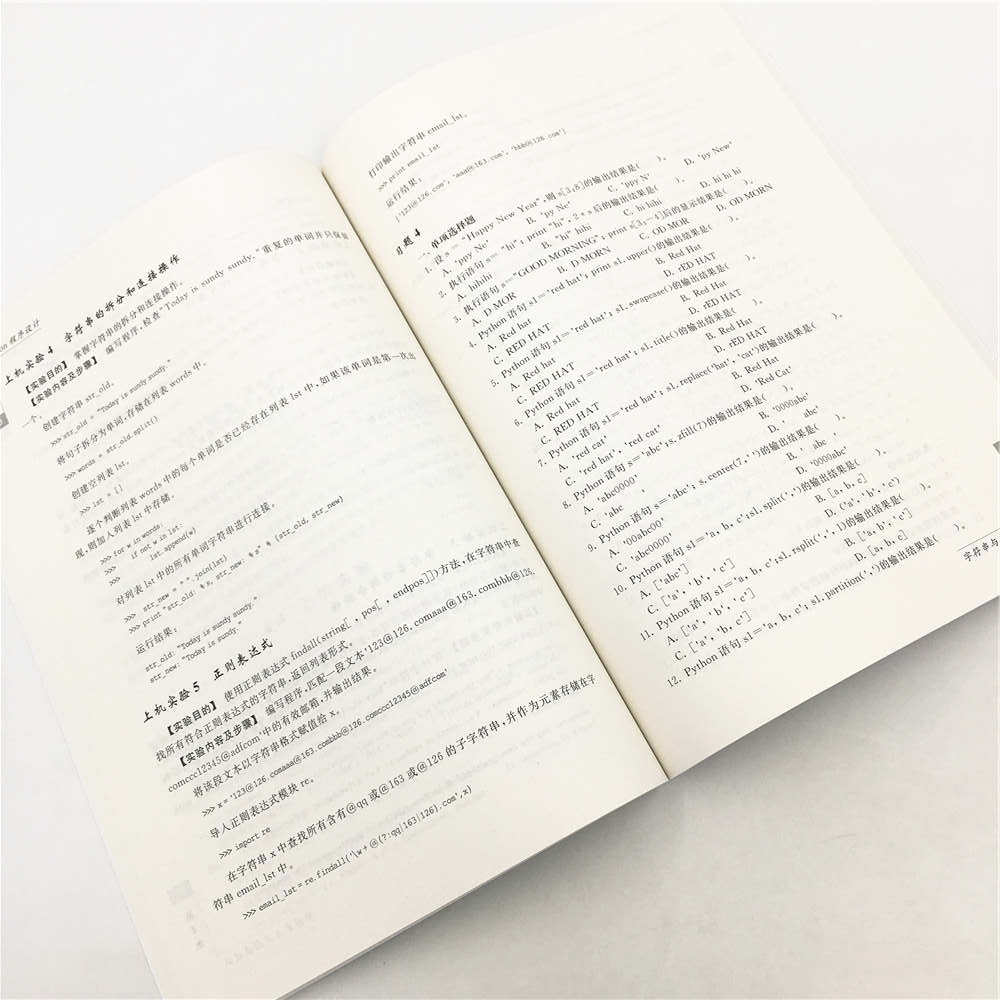 程序设计
上机实验4 字符串的拆分和连接操作
【实验目的】 掌握字符串的拆分和连接操作。
【实验内容及步骤】 编写程序,检查"Today is sundy sundy."重复的单词并只保留
一个。
创建字符串 str_old。
>>> str_old = "Today is sundy sundy."
将句子拆分为单词,存储在列表 words 中。
>>> words = str_old.split()
创建空列表 lst。
>>> lst = []
逐个判断列表 words 中的每个单词是否已经存在列表 lst 中,如果该单词是第一次出
现,则加入列表 lst 中存储。
>>> for w in words:
>>> if not w in lst:
>>> lst.append(w)
对列表 lst 中的所有单词字符串进行连接。
>>> str_new = " ".join(lst)
>>> print "str_old: %s, str_new: %s" % (str_old, str_new)
运行结果:
str_old: "Today is sundy sundy."
str_new: "Today is sundy."
上机实验5 正则表达式
【实验目的】 使用正则表达式 findall(string[, pos[, endpos]])方法,在字符串中查
找所有符合正则表达式的字符串,返回列表形式。
【实验内容及步骤】 编写程序,匹配一段文本'123@126.comaaa@163.combbb@126.
comccc12345@adfcom'中的有效邮箱,并输出结果。
将该段文本以字符串格式赋值给 x。
>>> x = '123@126.comaaa@163.combbb@126.comccc12345@adfcom'
导入正则表达式模块 re。
>>> import re
在字符串 x 中查找所有含有@qq 或@163 或@126 的子字符串,并作为元素存储在字
符串 email_lst 中。
>>> email_lst = re.findall('\w+@(?:qq|163|126).com',x)
打印输出字符串 email_lst。
>>> print email_lst
运行结果:
['123@126.com', 'aaa@163.com', 'bbb@126.com']
习题4
一、单项选择题
1. 设 s="Happy New Year",则 s[3:8]的输出结果是( )。
A. 'ppy Ne' B. 'py Ne' C. 'ppy N' D. 'py New'
2. 执行语句 s="hi"; print "hi", 2*s 后的输出结果是( )。
A. hihihi B. "hi" hihi C. hi hihi D. hi hi hi
3. 执行语句 s="GOOD MORNING"; print s[3:-4]后的显示结果是( )。
A. D MOR B. D-MORN C. OD MOR D. OD MORN
4. Python 语句 s1='red hat'; print s1.upper()的输出结果是( )。
A. Red hat B. Red Hat
C. RED HAT D. rED HAT
5. Python 语句 s1='red hat'; s1.swapcase()的输出结果是( )。
A. Red hat B. Red Hat
C. RED HAT D. rED HAT
6. Python 语句 s1='red hat'; s1.title()的输出结果是( )。
A. Red hat B. Red Hat
C. RED HAT D. rED HAT
7. Python 语句 s1='red hat'; s1.replace('hat','cat')的输出结果是( )。
A. 'red cat' B. Red Hat
C. 'red hat', 'red cat' D. 'Red Cat'
8. Python 语句 s='abc';s.zfill(7)的输出结果是( )。
A. 'abc0000' B. '0000abc'
C. 'abc ' D. ' abc'
9. Python 语句 s='abc';s.center(7,' ')的输出结果是( )。
A. '00abc00' B. ' abc '
C. 'abc0000' D. '0000abc'
10. Python 语句 s1='a, b, c';s1.split(',')的输出结果是( )。
A. ['abc'] B. [a, b, c]
C. ['a', 'b', 'c'] D. ('a', 'b', 'c')
11. Python 语句 s1='a, b, c';s1.rsplit(',',1)的输出结果是( )。
A. ['a', 'b', 'c'] B. ['a', 'b, c']
C. ['a, b', 'c'] D. [a, b, c]
12. Python 语句 s1='a, b, c';s1.partition(',')的输出结果是( )。
字符串与